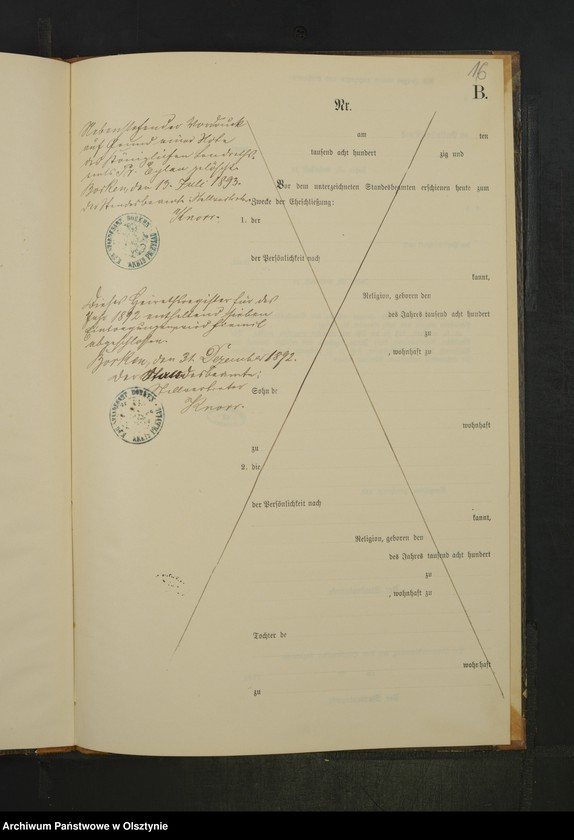 16
B.
Nr.
am ten
tausend acht hundert zig und
Vor dem unterzeichneten Standesbeamten erschienen heute zum
Zwecke der Eheschließung:
1. der
der Persönlichkeit nach
kannt,
Religion, geboren den
des Jahres tausend acht hundert
zu
, wohnhaft zu
Sohn de
wohnhaft
zu
2. die
der Persönlichkeit nach
kannt,
Religion, geboren den
des Jahres tausend acht hundert
zu
, wohnhaft zu
Tochter de
wohnhaft
zu
Nebenstehender Vordruck
auf Grund einer
des Königlichen Landraths
amts Pr. Eylau gelöscht
Borken, den 13. Juli 1893.
der Standesbeamte Stellvertreter
Knorr.
Dieses Heirathsregister für das
Jahr 1892 enthaltend sieben
Eintragungen wird hiermit
abgeschlossen.
Borken, den 31. Dezember 1892.
Der Standesbeamte:
Stellvertreter
Knorr.
Archiwum Państwowe w Olsztynie